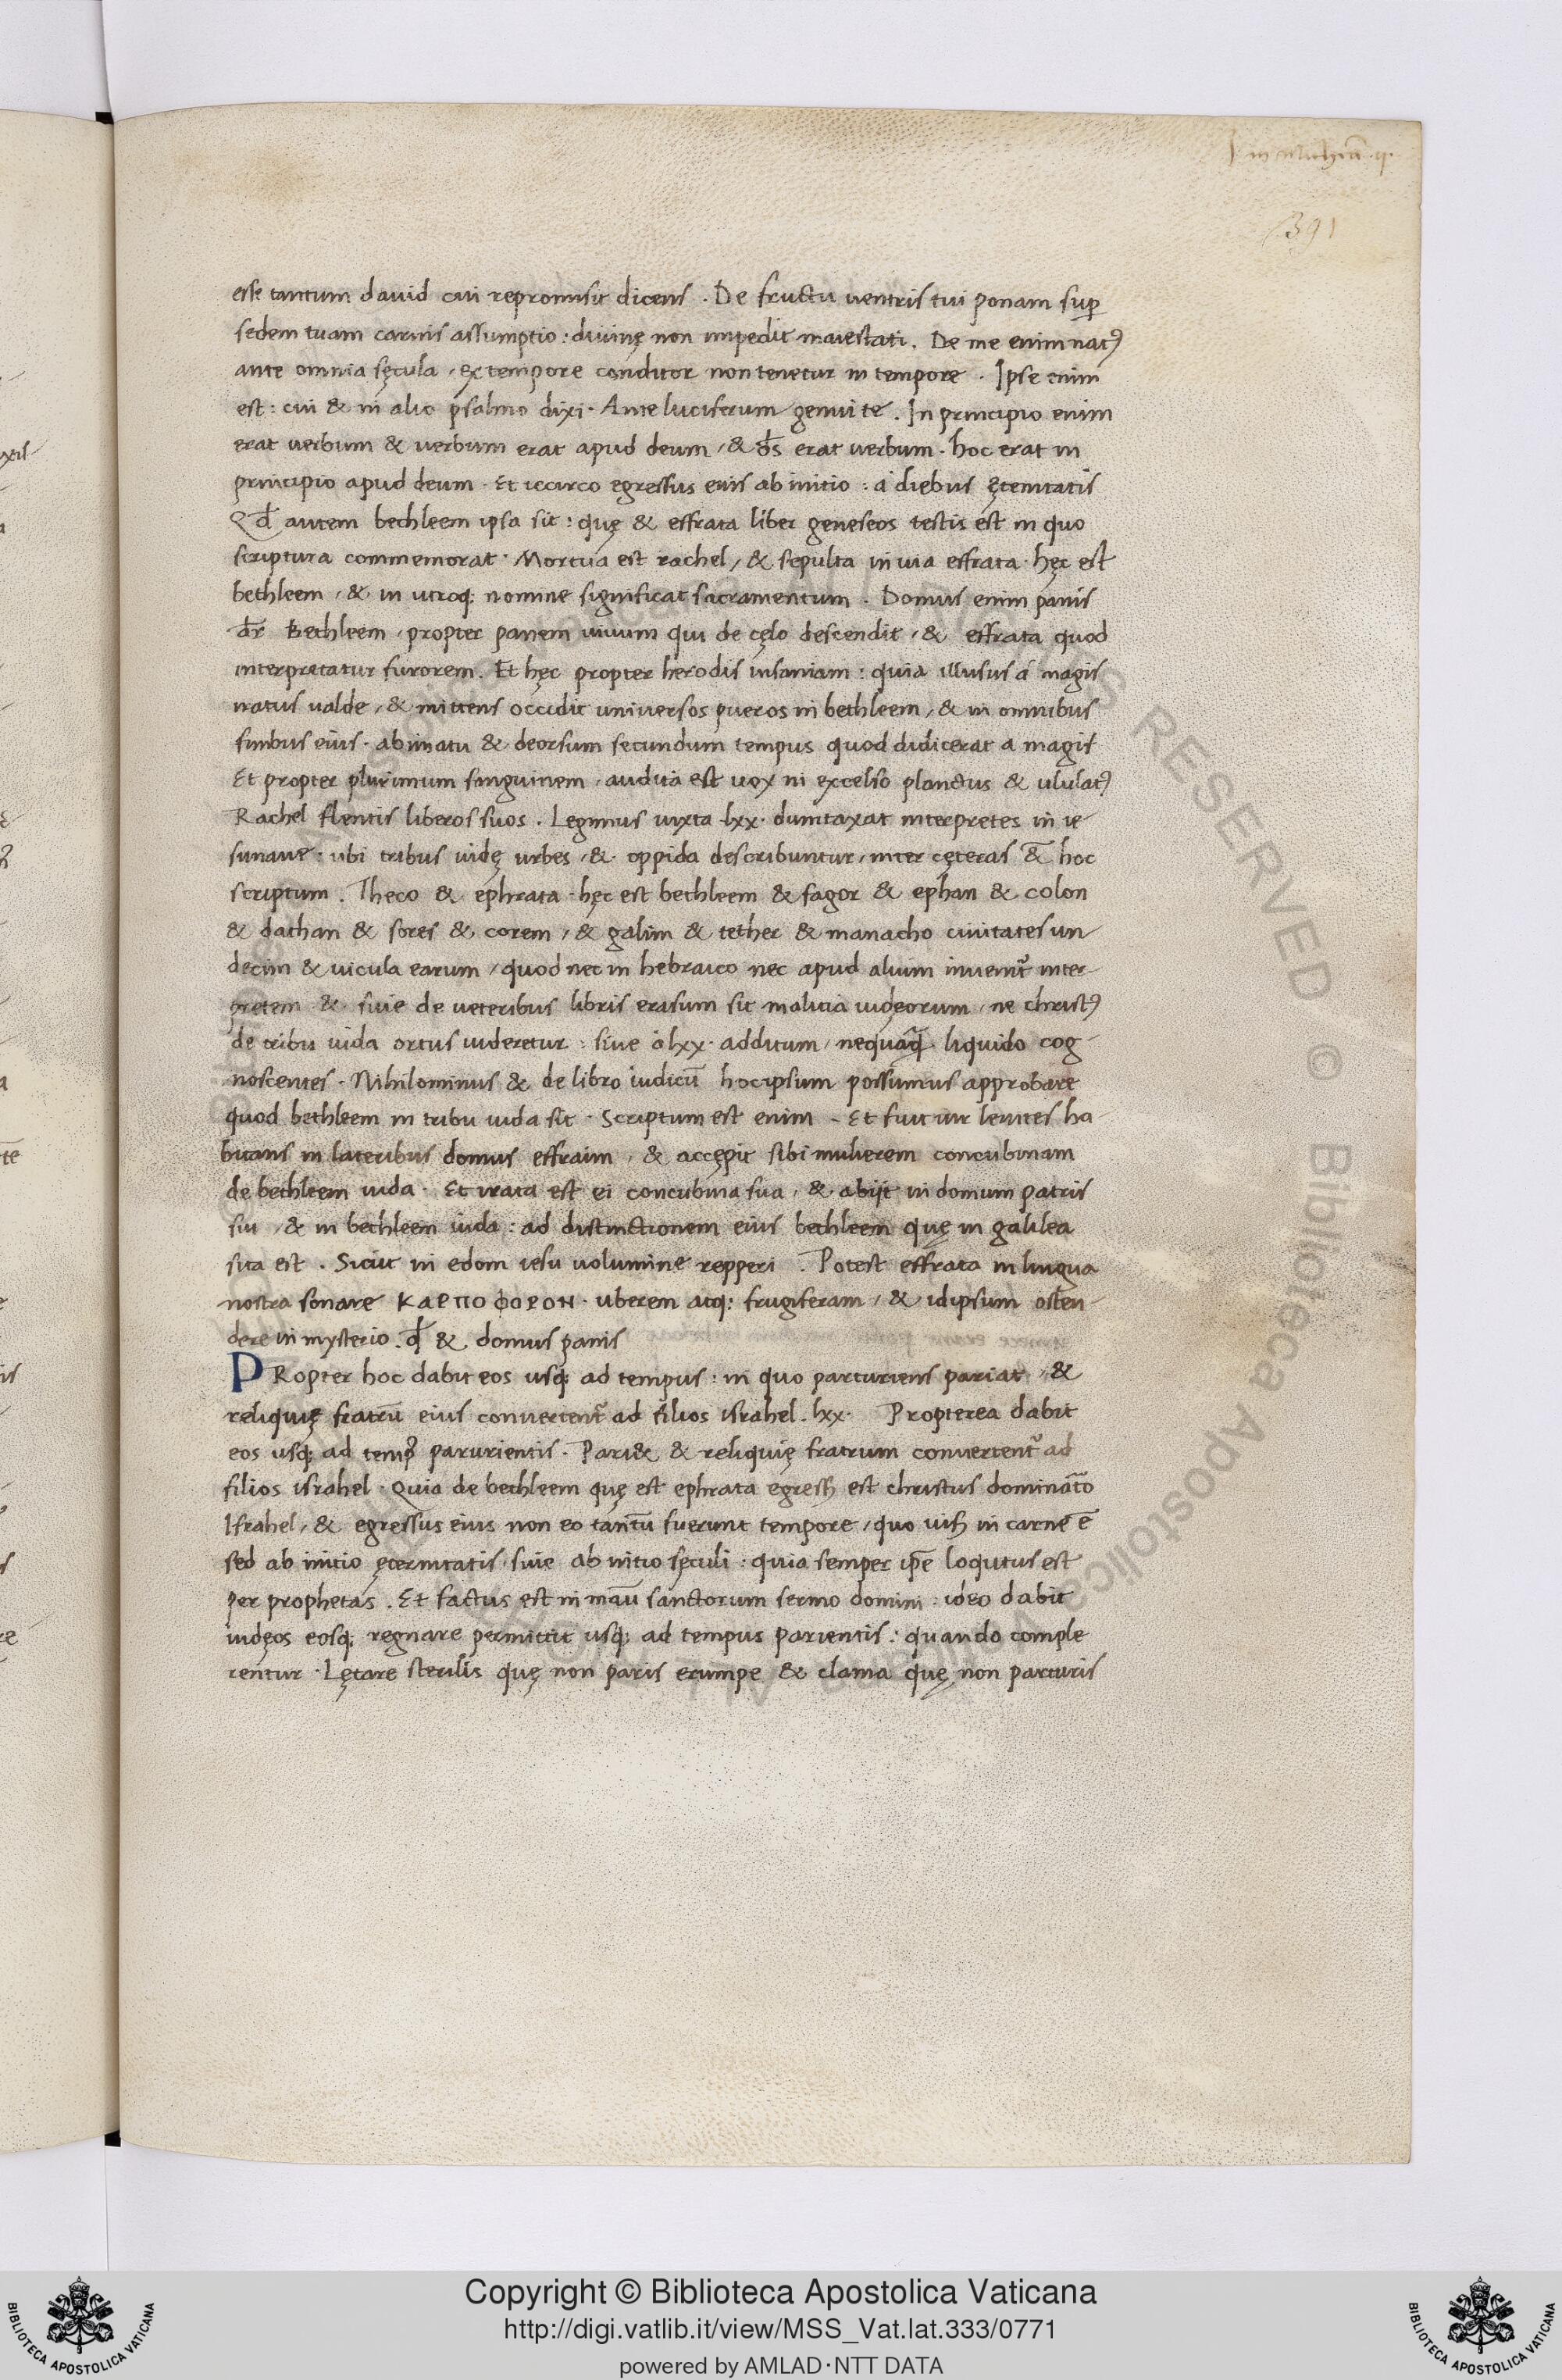 in Michea .q.
391
esse tantum dauid cui repromisit dicens . De fructu uentris tui ponam sup̲
sedem tuam carnis assumptio : diuinę non impedit maiestati . De me enim natꝰ
ante omnia sęcula , ex tempore conditor non tenetur in tempore . Ipse enim
est : cui & in alio psalmo dixi . Ante luciferum genui te . In principio enim
erat uerbum & uerbum erat apud deum , & d̅s erat uerbum . hoc erat in
principio apud deum . Et iccirco egressus eius ab initio : a diebus ęternitatis
Qđ autem bethleem ipsa sit : quę & effrata liber geneseos testis est in quo
scriptura commemorat . Mortua est rachel , & sepulta in uia effrata . hęc est
bethleem , & in utroq; nomine significat sacramentum . Domus enim panis
dr̅ Bethleem , propter panem uiuum qui de cęlo descendit , & effrata quod
interpretatur furorem . Et hęc propter herodis insaniam : quia illusus a magis
natus ualde , & mittens occidit universos pueros in bethleem , & in omnibus
finibus eius . abimatu & deorsum secundum tempus quod didicerat a magis
Et propter plurimum sanguinem , audita est uox in excelso planctus & ululatꝰ
Rachel flentis liberos suos . Legimus iuxta lxx . dumtaxat interpretes in ie
sunaue : ubi tribus iudę urbes , & oppida describuntur , inter cęteras &̅ hoc
scriptum . Theco & ephrata . hęc est bethleem & fagor & ephan & colon
& dathan & sores & corem , & galim & tether & manacho ciuitates un
decim & uicula earum , quod nec in hebraico nec apud alium inuenit᷑ inter-
pretem & siue de ueteribus libris erasum sit malicia iudęorum , ne christꝰ
de tribu iuda ortus uideretur : siue a lxx . additum , nequaq̅ liquido cog-
noscentes . Nihilominus & de libro iudicu̅ hoc ipsum possumus approbare
quod bethleem in tribu iuda sit . Scriptum est enim . Et fuit uir leuites ha-
bitans in lateribus domus effraim , & accępit sibi mulierem concubinam
de bethleem iuda . Et irata est ei concubina sua , & abijt in domum patris
sui , & in bethleem iuda : ad distinctionem eius bethleem quę in galilea
sita est . Sicut in edom iesu uolumine repperi . Potest effrata in lingua
nostra sonare ΚΑΡΠΟΦΟΡΟΝ . uberem atq; frugiferam , & idipsum osten-
dere in mysterio . qđ & domus panis
PRopter hoc dabit eos usq; ad tempus : in quo parturiens pariat , &
reliquię fratru̅ eius conuertent᷑ ad filios israhel . lxx . Propterea dabit
eos usq; ad tempꝰ parurientis . Pari& & reliquię fratrum conuertent᷑ ad
filios israhel . Quia de bethleem quę est ephrata egress; est christus dominat̅o
Israhel , & egressus eius non eo tantu̅ fuerunt tempore , quo uis; in carne e̅
sed ab initio ęternitatis siue ab initio sęculi : quia semper ip̅e loqutus est
per prophetas . Et factus est in man̅u sanctorum sermo domini : ideo dabit
iudęos eosq; regnare permittit usq; ad tempus parientis : quando comple
rentur . Lętare sterilis quę non paris erumpe & clama quę non parturis
Copyright © Biblioteca Apostolica Vaticana
http://digi.vatlib.it/view/MSS_Vat.lat.333/0771
powered by AMLAD·NTT DATA